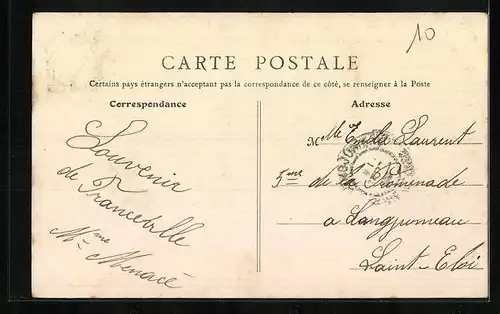 10
CARTE POSTALE
Certains pays étrangers n'acceptant pas la correspondance de ce côté, se renseigner à la Poste
Correspondance
Adresse
Souvenir
de Franceville
Mme Menacé
M lle Laurent
de la Promenade
a Longjumeau
Saint-Eloi